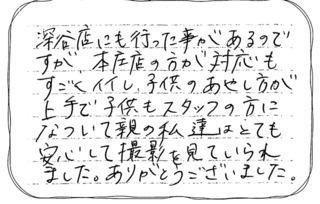 深谷店にも行った事があるので
すが、本庄店の方が対応も
すごくイイし、子供のあやし方が
上手で子供もスタッフの方に
なついて親の私達はとても
安心して撮影を見ていられ
ました。ありがとうございました。